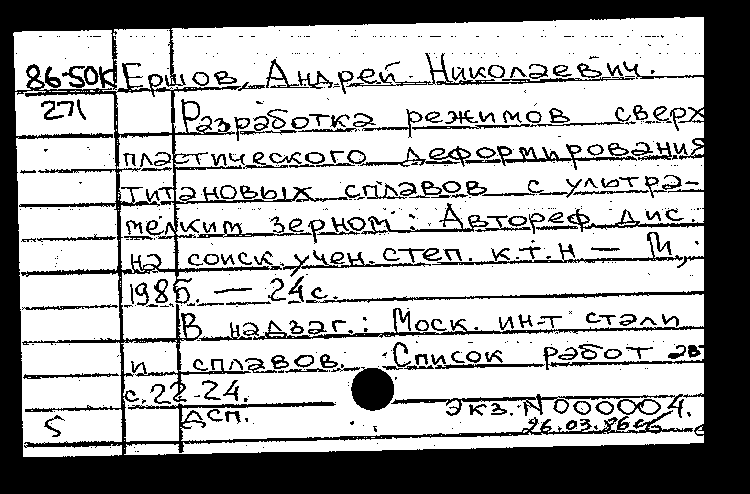 86-50К Ершов, Андрей Николаевич.
271 Разработка режимов сверх
пластического деформирования
титановых сплавов с ультра-
мелким зерном: Автореф. дис.
на соиск. учен. степ. к.т.н — М.,
1985. — 24с.
В надзаг.: Моск. ин-т стали
и сплавов. Список работ ав
с.22-24.
ДСП. экз. N 000004.
5 26.03.86